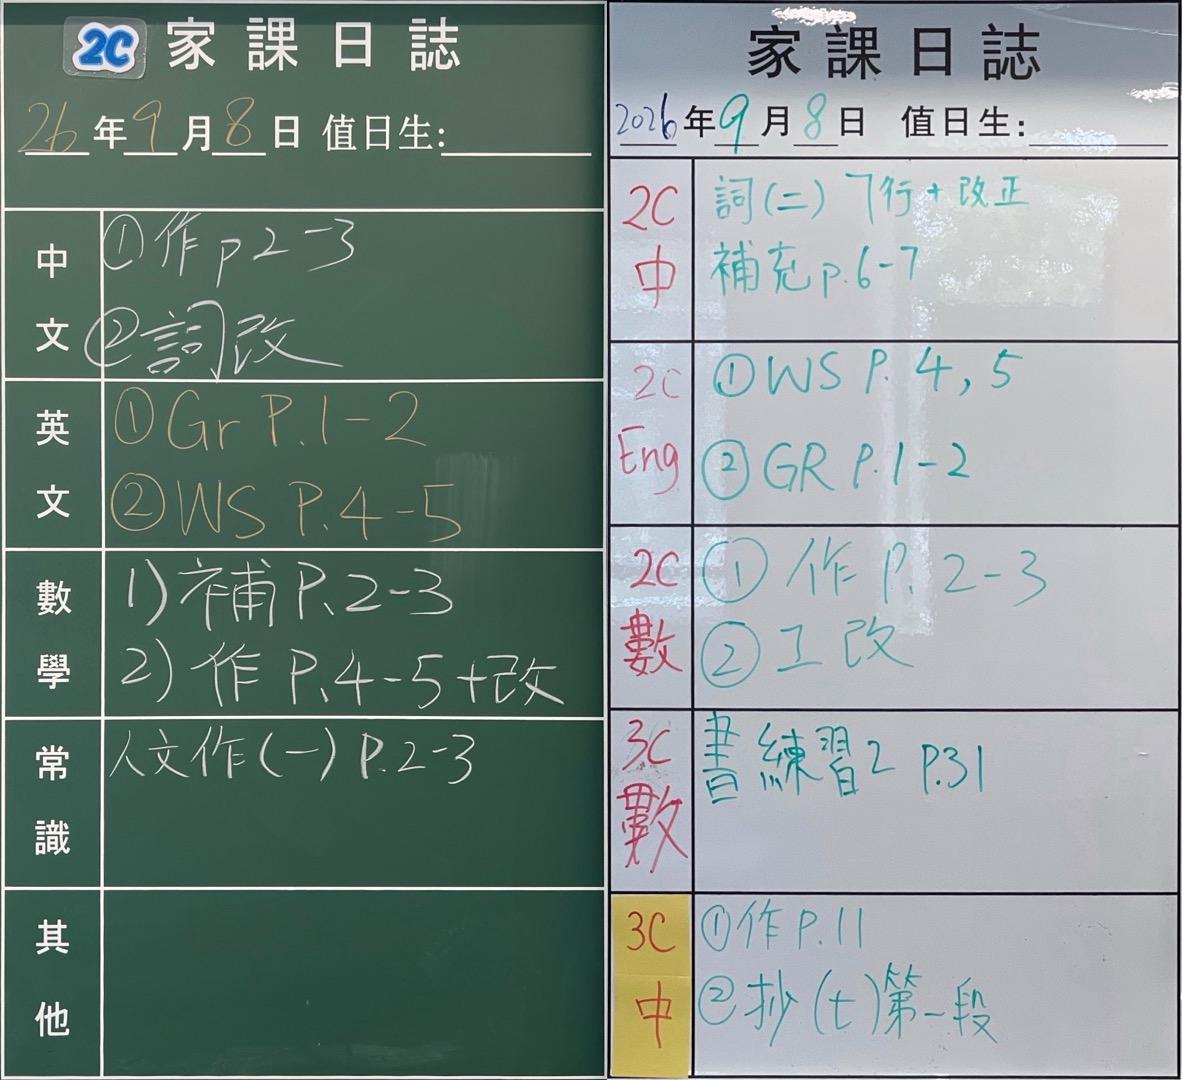 2C 家課日誌
26年9月8日 值日生:
中文
①作p2-3
②詞改
英文
①Gr P.1-2
②WS P.4-5
數學
1)補P.2-3
2)作P.4-5+改
常識
人文作(一)P.2-3
其他
家課日誌
2026年9月8日 值日生:
2C中
詞(二)7行+改正
補充p.6-7
2C Eng
①WS P.4,5
②GR P.1-2
2C數
①作P.2-3
②工改
3C數
書練習2 P.31
3C中
①作P.11
②抄(七)第一段